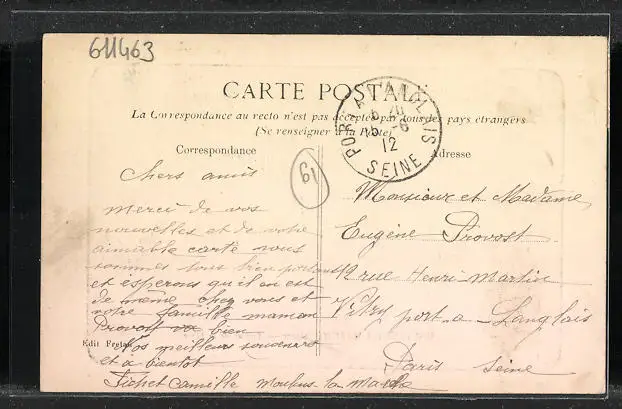 611463
CARTE POSTALE
La Correspondance au recto n'est pas acceptée par tous les pays étrangers
(Se renseigner à la Poste)
PORT-A-L'ANGLAIS
SEINE
6
12
Correspondance
61
Chers amis
Merci de vos
nouvelles et de votre
aimable carte nous
sommes tous bien portants
et espérons qu'il en est
de même chez vous et
votre famille maman
Provost va bien
Vos meilleurs souvenirs
et à bientôt
Fichet Camille Moulins la Marche
Edit
Adresse
Monsieur et Madame
Eugène Provost
12 rue Henri-Martin
Vitry port-a-Langlais
Paris Seine